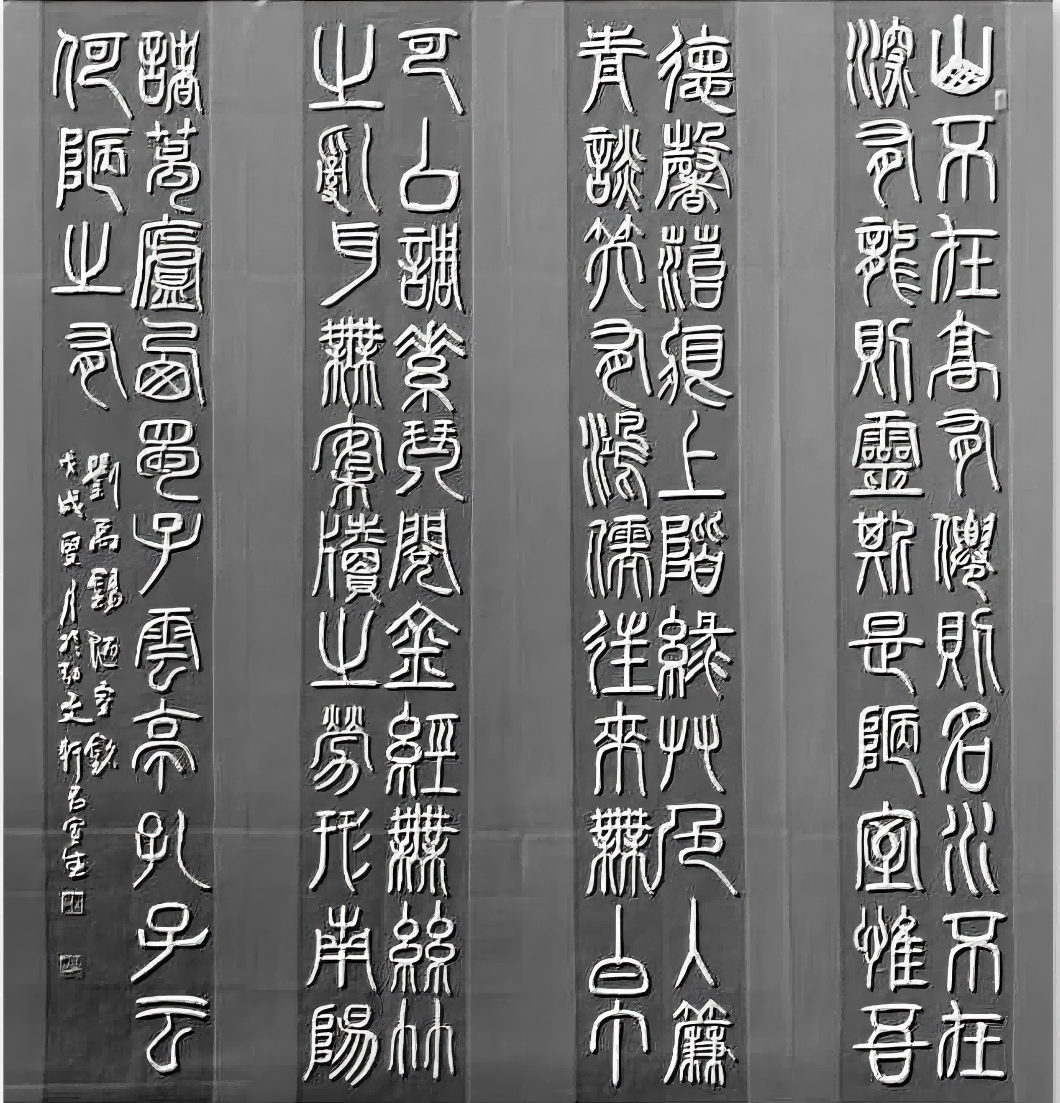 山不在高有僊則名水不在
深有龍則靈斯是陋室惟吾
德馨菭痕上階緣艸色入簾
青談笑有鴻儒往來無白丁
可以調素琴閱金經無絲竹
之亂耳無案牘之勞形南陽
諸葛廬西蜀子雲亭孔子云
何陋之有
劉禹錫陋室銘
戊戌夏月於弘文軒